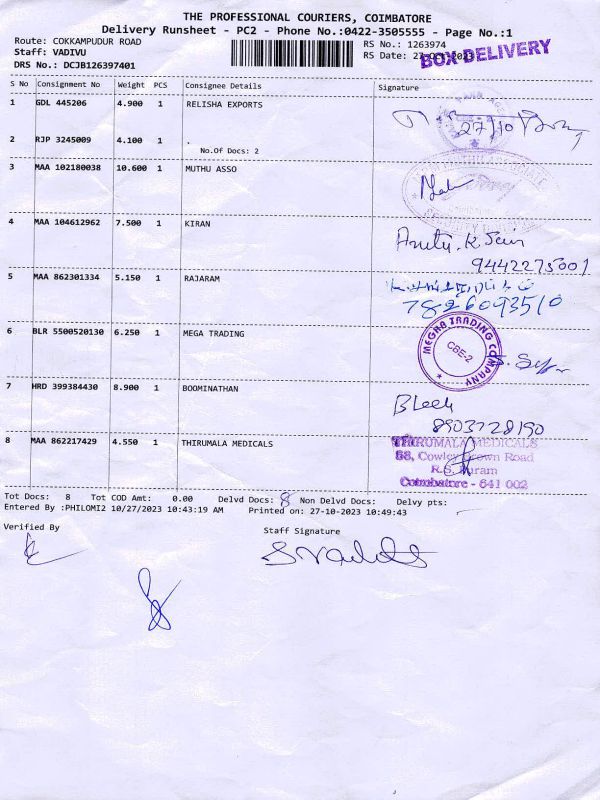 THE PROFESSIONAL COURIERS, COIMBATORE
Delivery Runsheet - PC2 - Phone No.:0422-3505555 - Page No.:1
Route: COKKAMPUDUR ROAD RS No.: 1263974
Staff: VADIVU RS Date: 27-Oct-2023
BOX DELIVERY
DRS No.: DCJB126397401
S No Consignment No Weight PCS Consignee Details Signature
1 GDL 445206 4.900 1 RELISHA EXPORTS
27/10
2 RJP 3245009 4.100 1 .
No.Of Docs: 2
3 MAA 102180038 10.600 1 MUTHU ASSO
4 MAA 104612962 7.500 1 KIRAN
9442275001
5 MAA 862301334 5.150 1 RAJARAM
7826093510
6 BLR 5500520130 6.250 1 MEGA TRADING
MEGHA TRADING COMPANY
CBE-2
7 HRD 399384430 8.900 1 BOOMINATHAN
8903728190
8 MAA 862217429 4.550 1 THIRUMALA MEDICALS
THIRUMALA MEDICALS
58, Cowley Brown Road
R.S. Puram
Coimbatore - 641 002
Tot Docs: 8 Tot COD Amt: 0.00 Delvd Docs: 8 Non Delvd Docs: Delvy pts:
Entered By :PHILOMI2 10/27/2023 10:43:19 AM Printed on: 27-10-2023 10:49:43
Verified By Staff Signature